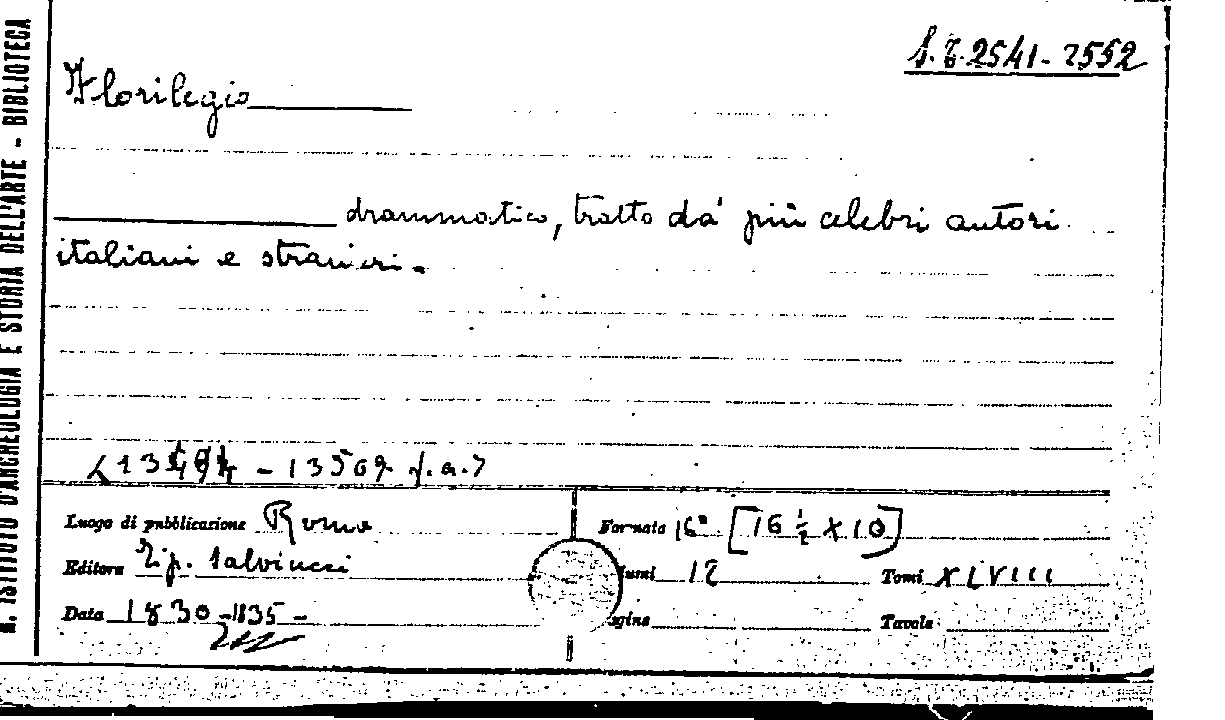 R. ISTITUTO D'ARCHEOLOGIA E STORIA DELL'ARTE - BIBLIOTECA
S.T. 2541-2552
Florilegio
drammatico, tratto da' più celebri autori
italiani e stranieri.
13569 f.a.
Luogo di pubblicazione Roma
Formato 16° [16 ½ x 10]
Editore Tip. Salviucci
12
Tomi XLVIII
Data 1830-1835-
Tavole